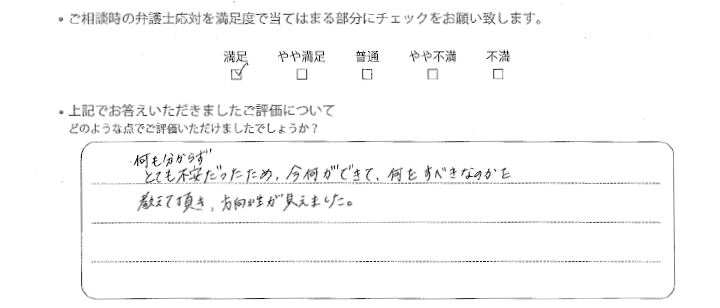 • ご相談時の弁護士応対を満足度で当てはまる部分にチェックをお願い致します。
満足 やや満足 普通 やや不満 不満
☑ □ □ □ □
• 上記でお答えいただきましたご評価について
どのような点でご評価いただけましたでしょうか？
何も分からず
とても不安だったため、今何ができて、何をすべきなのかを
教えて頂き、方向性が見えました。